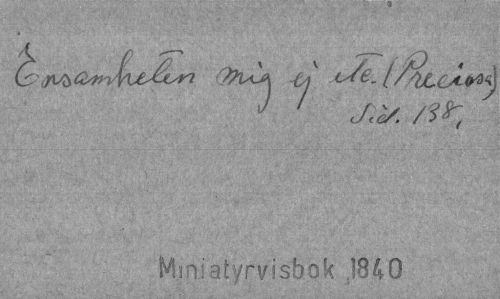 Ensamheten mig ej etc. (Preciosa)
Sid. 138,
Miniatyrvisbok 1840